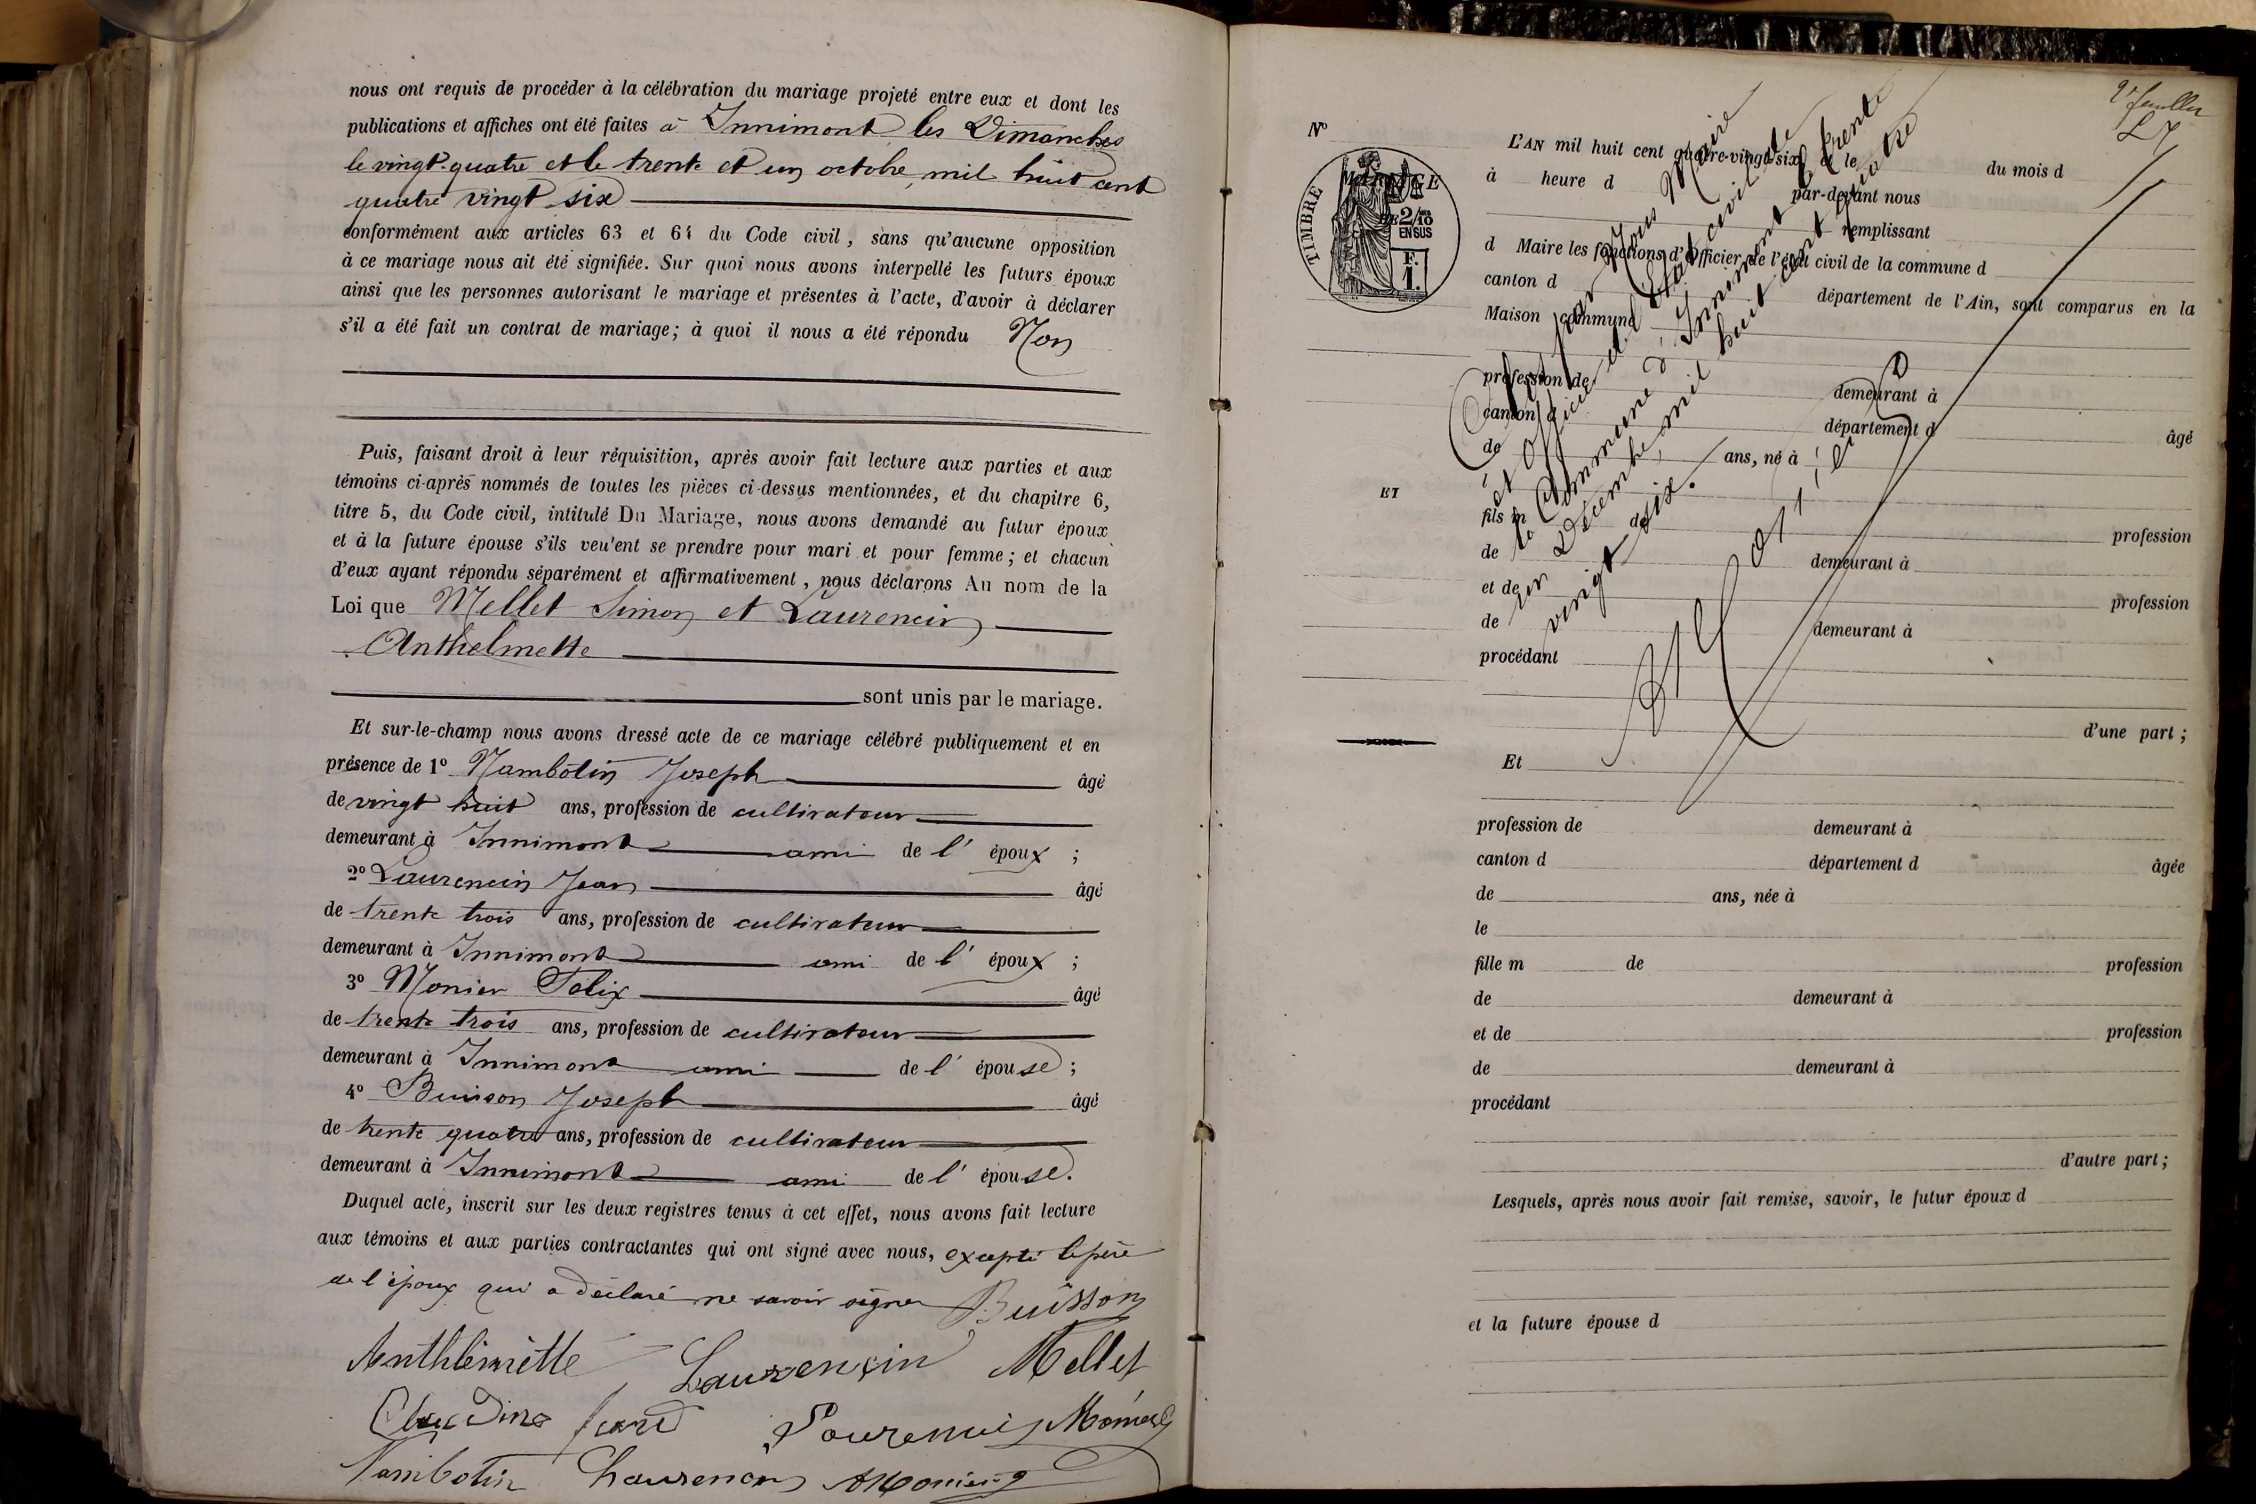 nous ont requis de procéder à la célébration du mariage projeté entre eux et dont les
publications et affiches ont été faites à Innimont les Dimanches
le vingt-quatre et le trente et un octobre, mil huit cent
quatre vingt six
conformément aux articles 63 et 64 du Code civil, sans qu'aucune opposition
à ce mariage nous ait été signifiée. Sur quoi nous avons interpellé les futurs époux
ainsi que les personnes autorisant le mariage et présentes à l'acte, d'avoir à déclarer
s'il a été fait un contrat de mariage; à quoi il nous a été répondu Non
Puis, faisant droit à leur réquisition, après avoir fait lecture aux parties et aux
témoins ci-après nommés de toutes les pièces ci-dessus mentionnées, et du chapitre 6,
titre 5, du Code civil, intitulé Du Mariage, nous avons demandé au futur époux
et à la future épouse s'ils veu'ent se prendre pour mari et pour femme; et chacun
d'eux ayant répondu séparément et affirmativement, nous déclarons Au nom de la
Loi que Mellet Simon et Laurencin
Anthelmette
sont unis par le mariage.
Et sur-le-champ nous avons dressé acte de ce mariage célébré publiquement et en
présence de 1º Nambotin Joseph âgé
de vingt huit ans, profession de cultivateur
demeurant à Innimont ami de l' époux ;
2º Laurencin Jean âgé
de trente trois ans, profession de cultivateur
demeurant à Innimont ami de l' époux ;
3º Monier Felix âgé
de trente trois ans, profession de cultivateur
demeurant à Innimont ami de l' épouse ;
4º Buisson Joseph âgé
de trente quatre ans, profession de cultivateur
demeurant à Innimont ami de l' épouse.
Duquel acte, inscrit sur les deux registres tenus à cet effet, nous avons fait lecture
aux témoins et aux parties contractantes qui ont signé avec nous, excepté le père
de l'époux qui a déclaré ne savoir signer Buisson
Anthlémette Laurençin Mellet
Claudine
Nambotin Laurencin Monier
2e feuillet
Nº
TIMBRE
MARIAGE
2/10
EN SUS
F.
1.
ET
L'AN mil huit cent quatre-vingt-six, et le du mois d
à heure d par-devant nous
remplissant
d Maire les fonctions d'Officier de l'état civil de la commune d
canton d département de l'Ain, sont comparus en la
Maison commune
profession de demeurant à
canton d département d âgé
de ans, né à
fils m de profession
de demeurant à
et de profession
de demeurant à
procédant
d'une part ;
par Nous Maire
et Officier de l'État civil de
la Commune d'Innimont le trente
un Décembre, mil huit cent quatre
vingt-six.
Et
profession de demeurant à
canton d département d âgée
de ans, née à
le
fille m de profession
de demeurant à
et de profession
de demeurant à
procédant
d'autre part ;
Lesquels, après nous avoir fait remise, savoir, le futur époux d
et la future épouse d